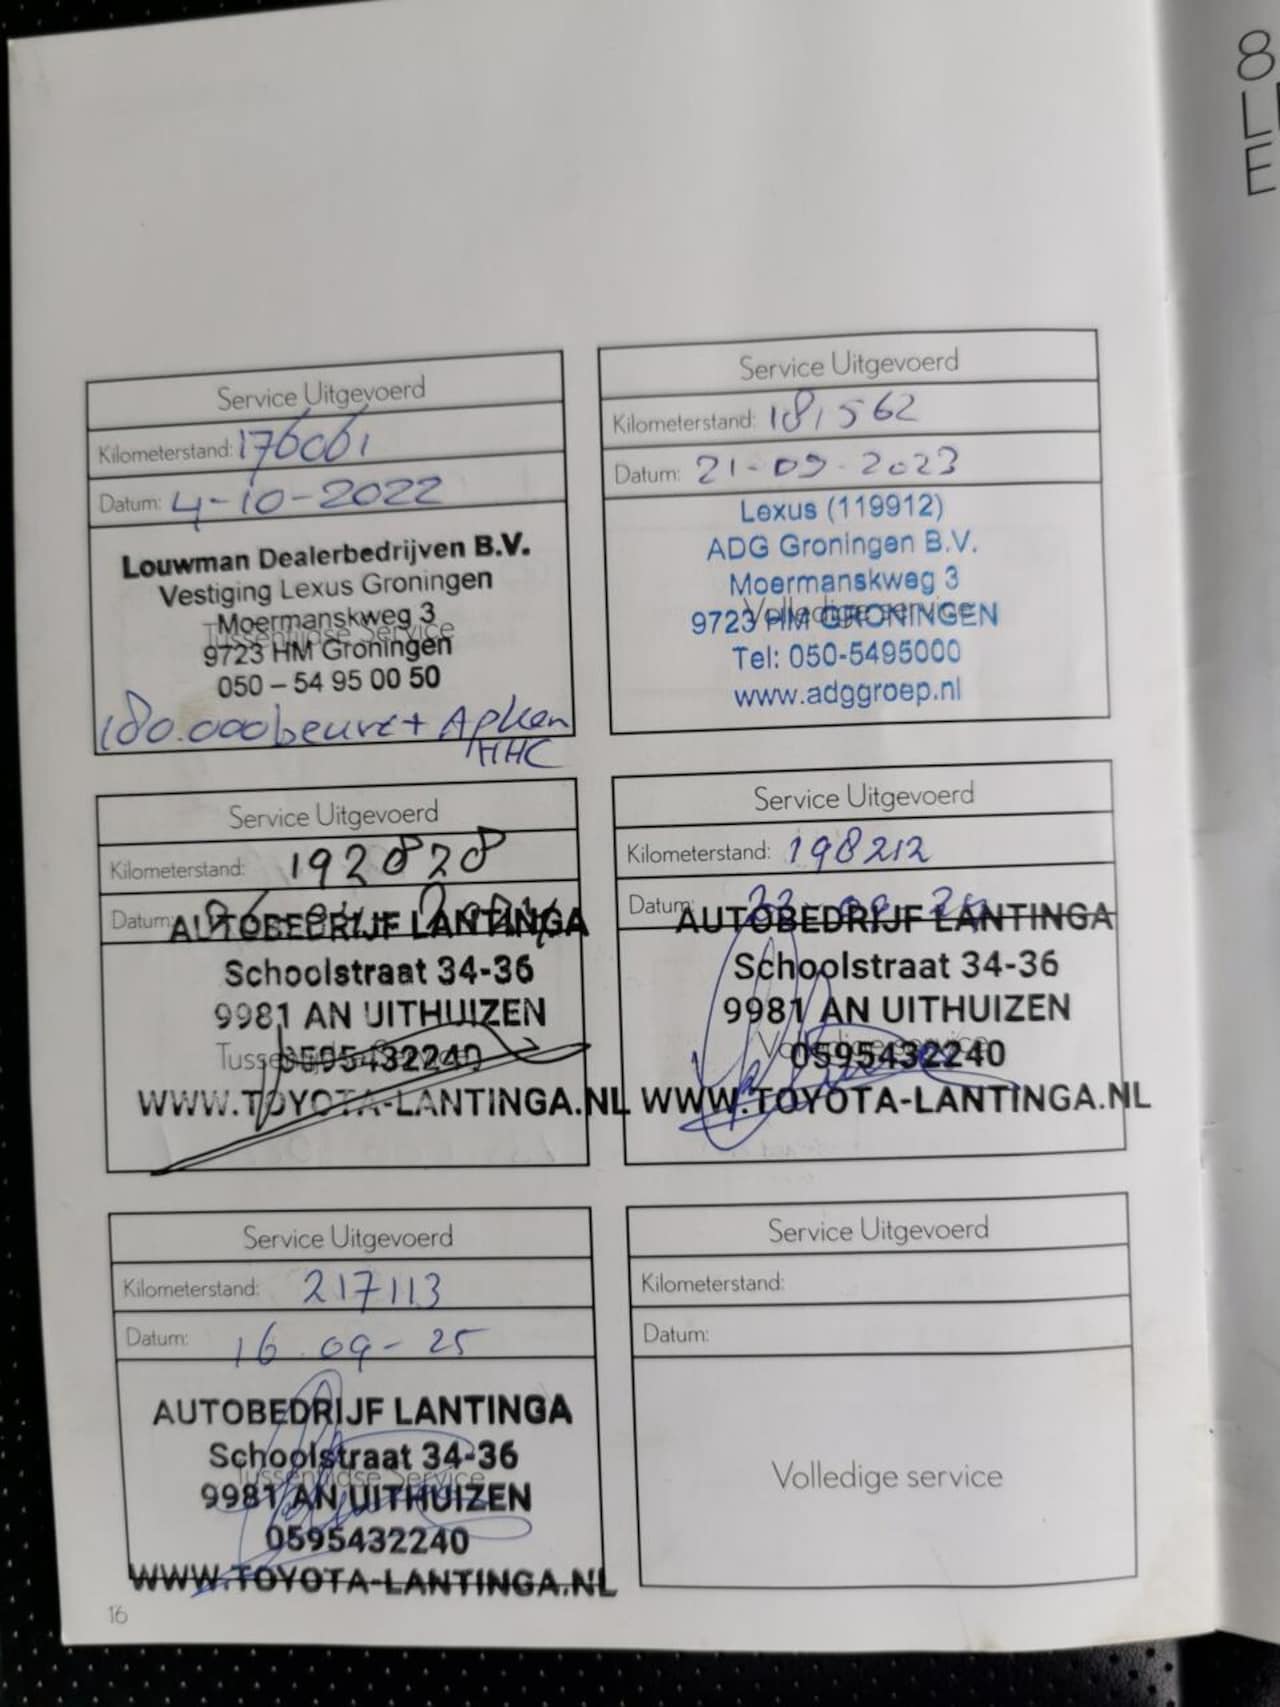 8
L
E
Service Uitgevoerd
Kilometerstand: 176061
Datum: 4-10-2022
Louwman Dealerbedrijven B.V.
Vestiging Lexus Groningen
Moermanskweg 3
Tussentijdse Service
9723 HM Groningen
050 – 54 95 00 50
180.000 beurt + Apken
HHC
Service Uitgevoerd
Kilometerstand: 181562
Datum: 21-09-2023
Lexus (119912)
ADG Groningen B.V.
Moermanskweg 3
Volledige service
9723 HM GRONINGEN
Tel: 050-5495000
www.adggroep.nl
Service Uitgevoerd
Kilometerstand: 192828
Datum:
AUTOBEDRIJF LANTINGA
Schoolstraat 34-36
9981 AN UITHUIZEN
Tussentijdse Service
0595432240
WWW.TOYOTA-LANTINGA.NL
Service Uitgevoerd
Kilometerstand: 198212
Datum:
AUTOBEDRIJF LANTINGA
Schoolstraat 34-36
9981 AN UITHUIZEN
Volledige service
0595432240
WWW.TOYOTA-LANTINGA.NL
Service Uitgevoerd
Kilometerstand: 217113
Datum: 16-09-25
AUTOBEDRIJF LANTINGA
Schoolstraat 34-36
Tussentijdse Service
9981 AN UITHUIZEN
0595432240
WWW.TOYOTA-LANTINGA.NL
Service Uitgevoerd
Kilometerstand:
Datum:
Volledige service
16